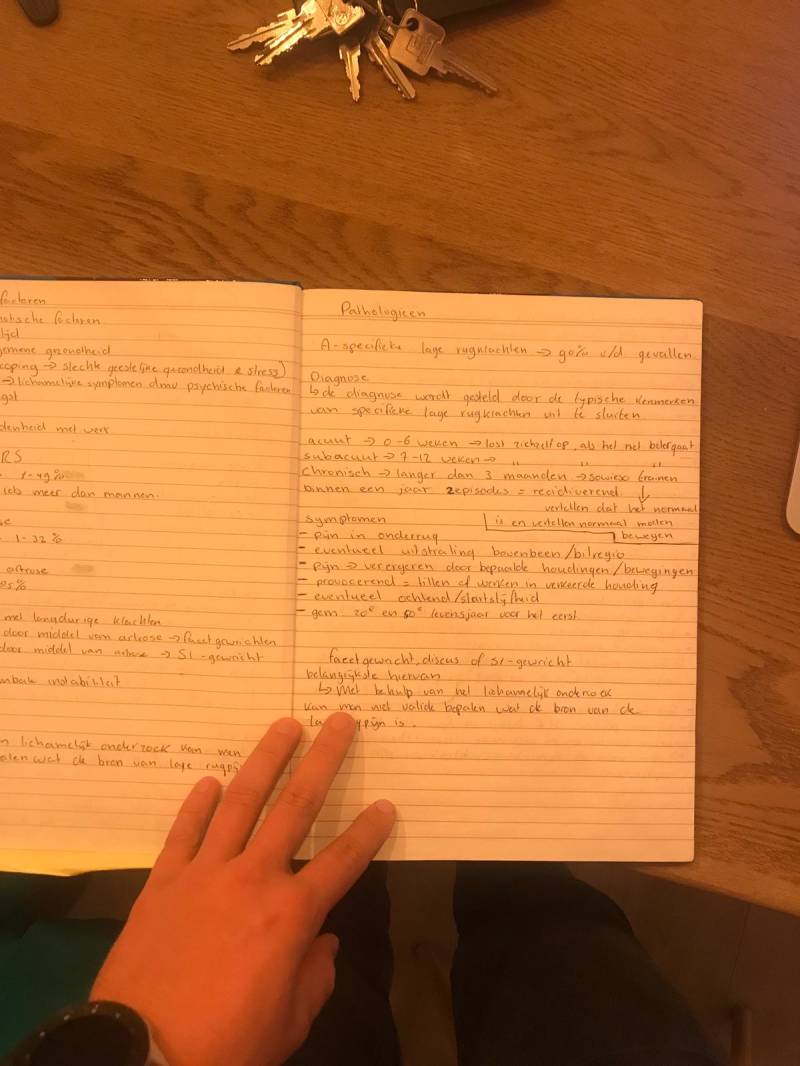 factoren
factoren
tijd
gemene gezondheid
coping → slechte geestelijke gezondheid & stress)
→ lichamelijke symptomen dmv psychische factoren
denheid met werk
RS
1-49%
iets meer dan mannen.
1-32%
artrose
25%
met langdurige klachten
door middel van artrose → facetgewrichten
door middel van artrose → SI-gewricht
instabiliteit
n lichamelijk onderzoek kan men
alen wat de bron van lage rugpij
Pathologieen
A-specifieke lage rugklachten → 90% v/d gevallen
Diagnose
↳ de diagnose wordt gesteld door de typische kenmerken
van specifieke lage rugklachten uit te sluiten.
acuut → 0-6 weken → lost zichzelf op, als het niet belergaat
subacuut → 7-12 weken → " " "
chronisch → langer dan 3 maanden → sowieso trainen
binnen een jaar 2 episodes = recidiverend ↓
vertellen dat het normaal
symptomen is en vertellen normaal moeten
- pijn in onderrug bewegen
- eventueel uitstraling bovenbeen/bilregio
- pijn → verergeren door bepaalde houdingen/bewegingen
- provocerend = tillen of werken in verkeerde houding
- eventueel ochtend/startstijfheid
- gem. 20e en 50e levensjaar voor het eerst
facetgewricht, discus of SI-gewricht
belangrijkste hiervan
↳ Met behulp van het lichamelijk onderzoek
kan men niet valide bepalen wat de bron van de
la pijn is.